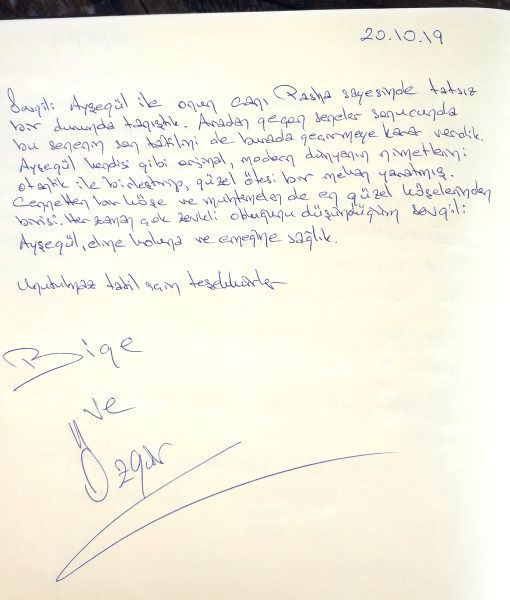 20.10.19
Sevgili Ayşegül ile onun canı Pasha sayesinde tatsız
bir durumda tanıştık. Aradan geçen seneler sonucunda
bu senenin son tatilini de burada geçirmeye karar verdik.
Ayşegül kendisi gibi orjinal, modern dünyanın nimetlerini
otantik ile birleştirip, güzel ötesi bir mekan yaratmış.
Cennetten bir köşe ve muhtemelen de en güzel köşelerinden
birisi. Her zaman çok zevkli olduğunu düşündüğüm sevgili
Ayşegül, eline koluna ve emeğine sağlık.
Unutulmaz tatil için teşekkürler
Bige
ve
Özgür